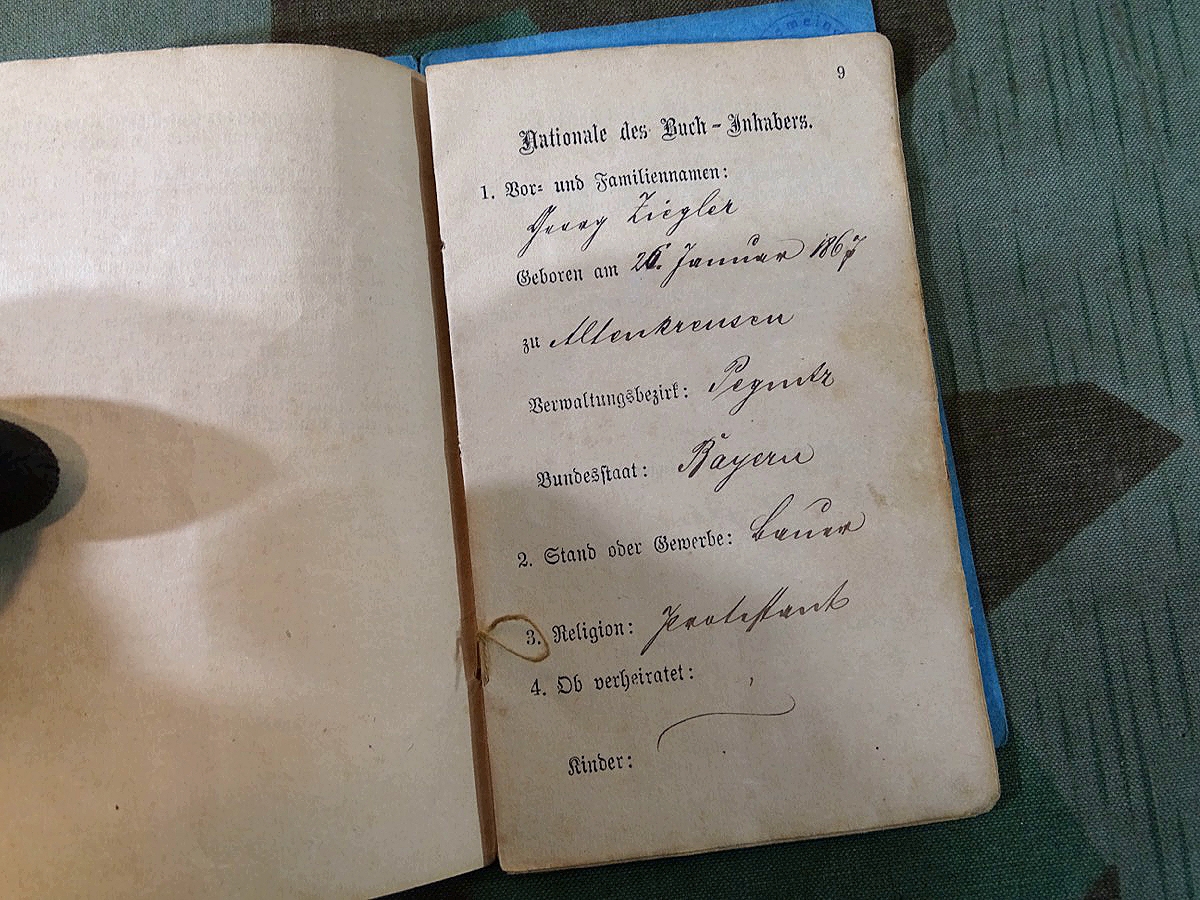 meind
9
Nationale des Buch-Inhabers.
1. Vor- und Familiennamen:
Georg Ziegler
Geboren am 26. Januar 1867
zu Altenkreusen
Verwaltungsbezirk: Pegnitz
Bundesstaat: Bayern
2. Stand oder Gewerbe: Bauer
3. Religion: Protestant
4. Ob verheiratet:
Kinder: